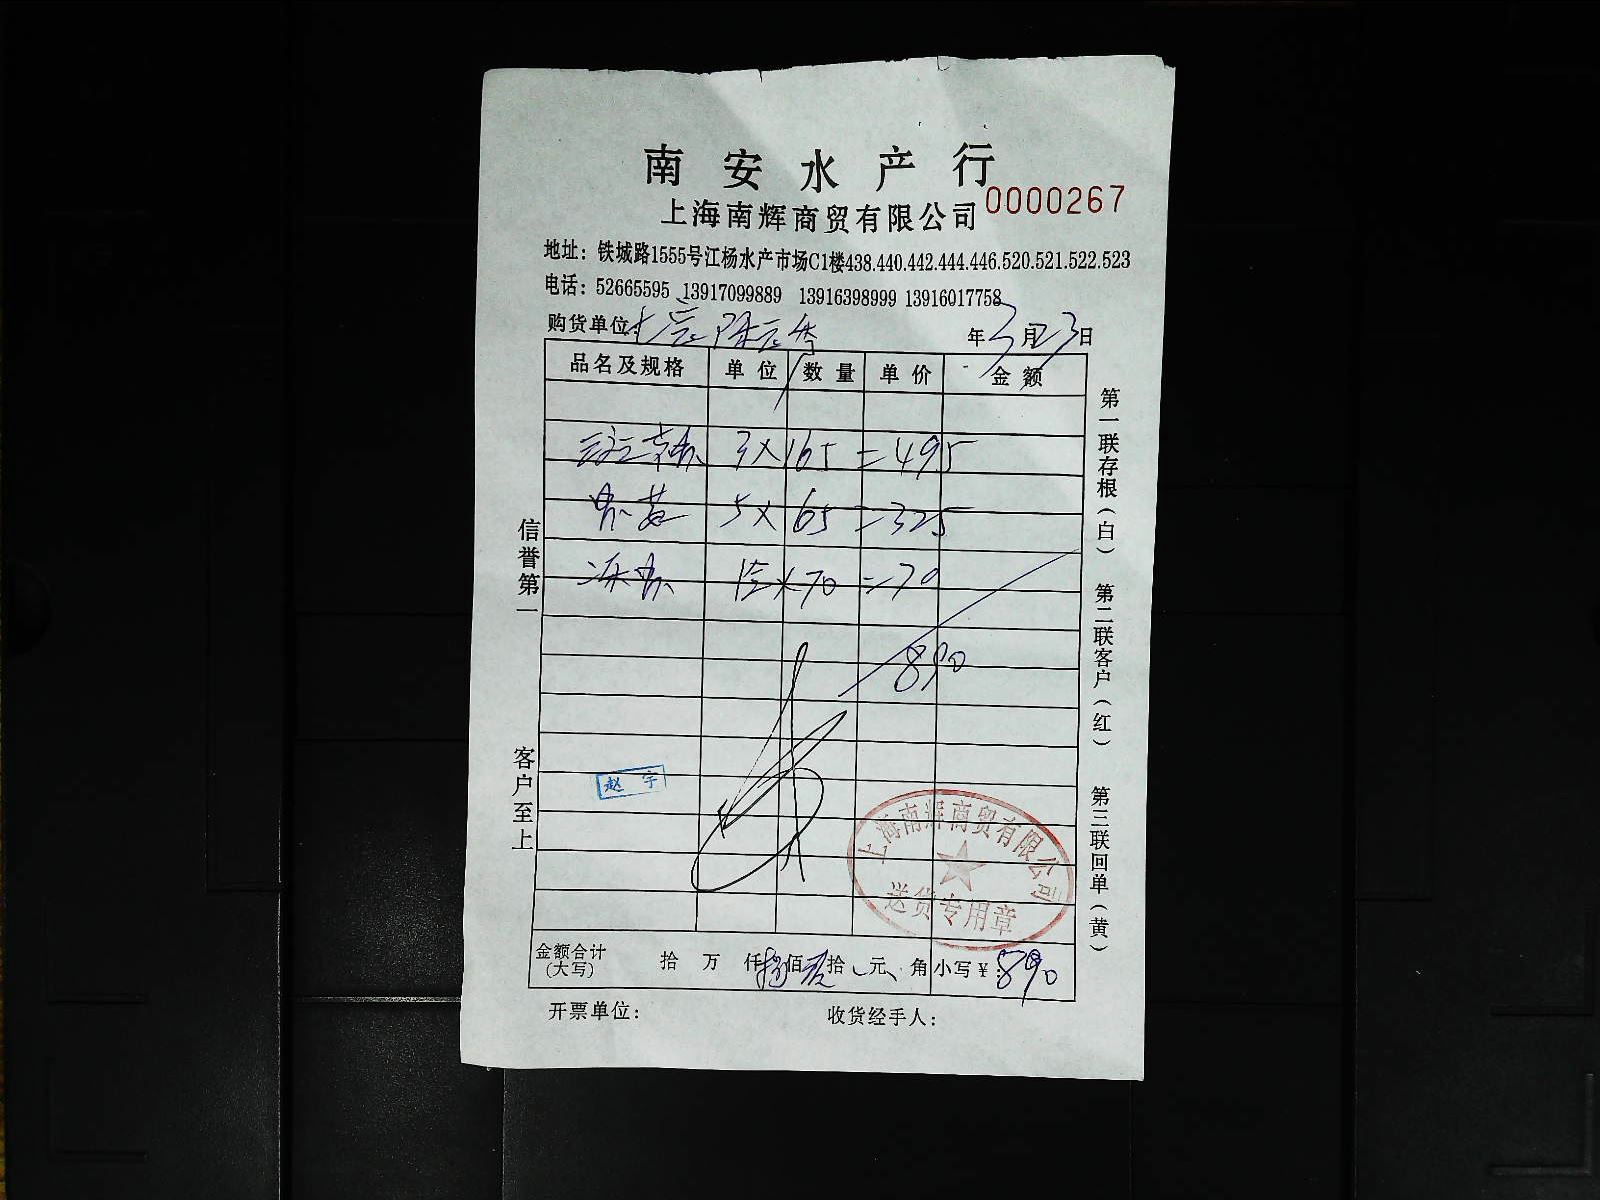 南安水产行
0000267
上海南辉商贸有限公司
地址：铁城路1555号江杨水产市场C1楼438.440.442.444.446.520.521.522.523
电话：52665595 13917099889 13916398999 13916017758
购货单位： 年3月23日
品名及规格 单位 数量 单价 金额
3×165=495
5×65=325
×70=70
890
信誉第一
客户至上
第一联存根（白） 第二联客户（红） 第三联回单（黄）
赵宇
上海南辉商贸有限公司
送货专用章
金额合计（大写） 拾 万 仟 捌佰 玖拾 元 角 小写￥：890
开票单位： 收货经手人：